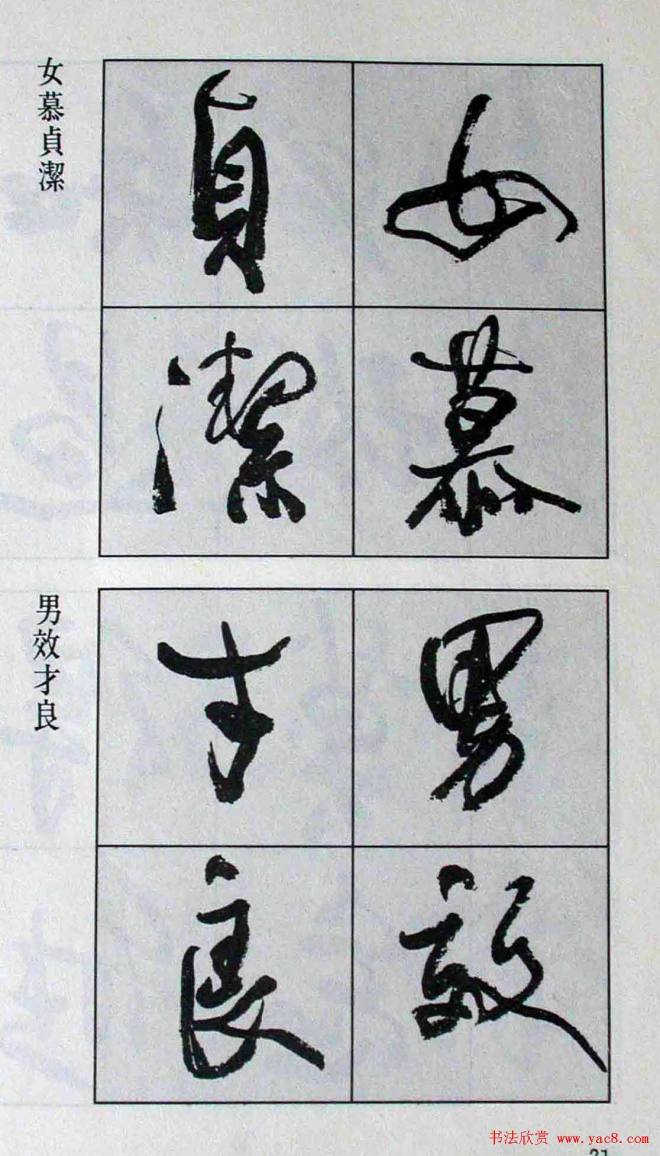 女慕貞潔
女慕
貞潔
男效才良
男效
才良
书法欣赏 www.yac8.com
21